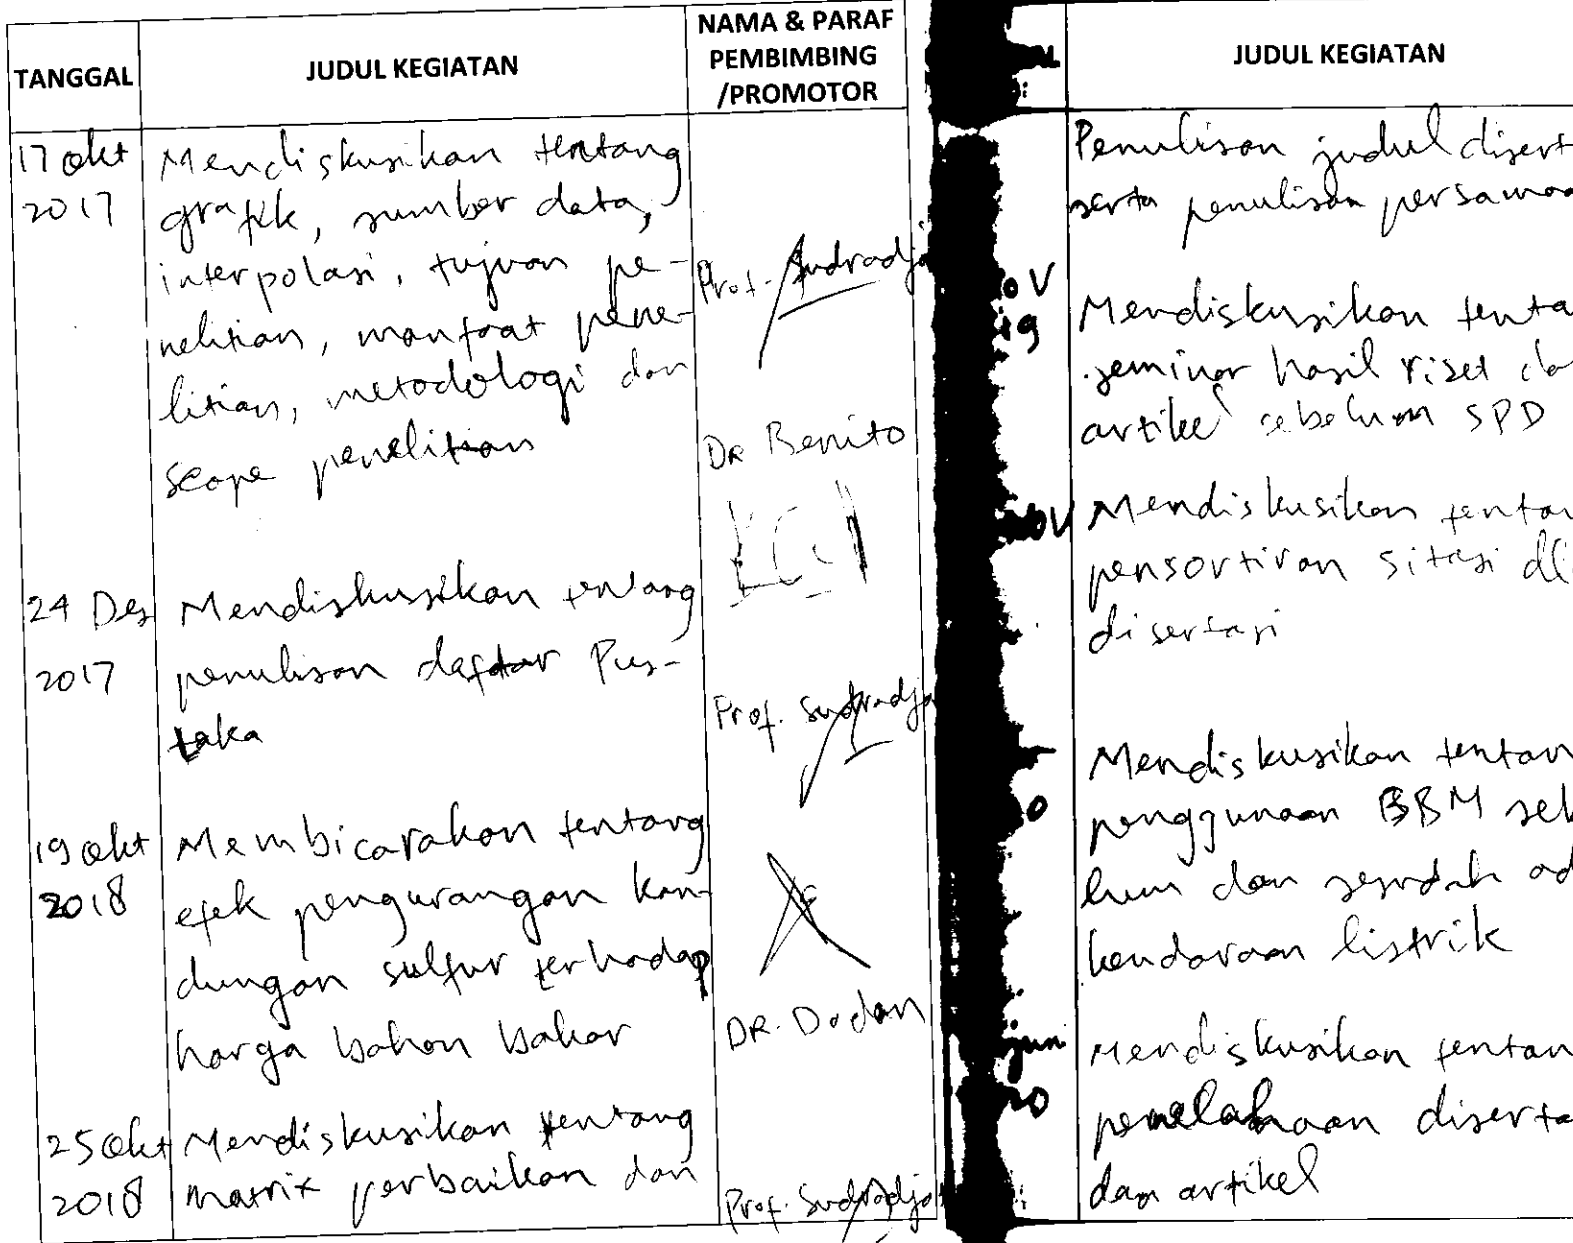 TANGGAL
JUDUL KEGIATAN
NAMA & PARAF
PEMBIMBING
/PROMOTOR
17 Okt
2017
Mendiskusikan tentang
grafik, sumber data,
interpolasi, tujuan pe-
nelitian, manfaat pene-
litian, metodologi dan
scope penelitian
Prof. Sudradja
DR Benito
24 Des
2017
Mendiskusikan tentang
penulisan daftar Pus-
taka
Prof. Sudradja
19 Okt
2018
Membicarakan tentang
efek pengurangan kan-
dungan sulfur terhadap
harga bahan bakar
DR. Dadan
25 Okt
2018
Mendiskusikan tentang
matrix perbaikan dan
Prof. Sudradja
JUDUL KEGIATAN
Penulisan judul disert
serta penulisan persamaa
ov
19
Mendiskusikan tenta
seminar hasil riset da
artikel sebelum SPD
ov
Mendiskusikan tentan
pensortiran sitasi
disertasi
0
Mendiskusikan tentan
penggunaan BBM sebe
lum dan sesudah ad
kendaraan listrik
jun
20
Mendiskusikan tentan
penelahaan diserta
dan artikel